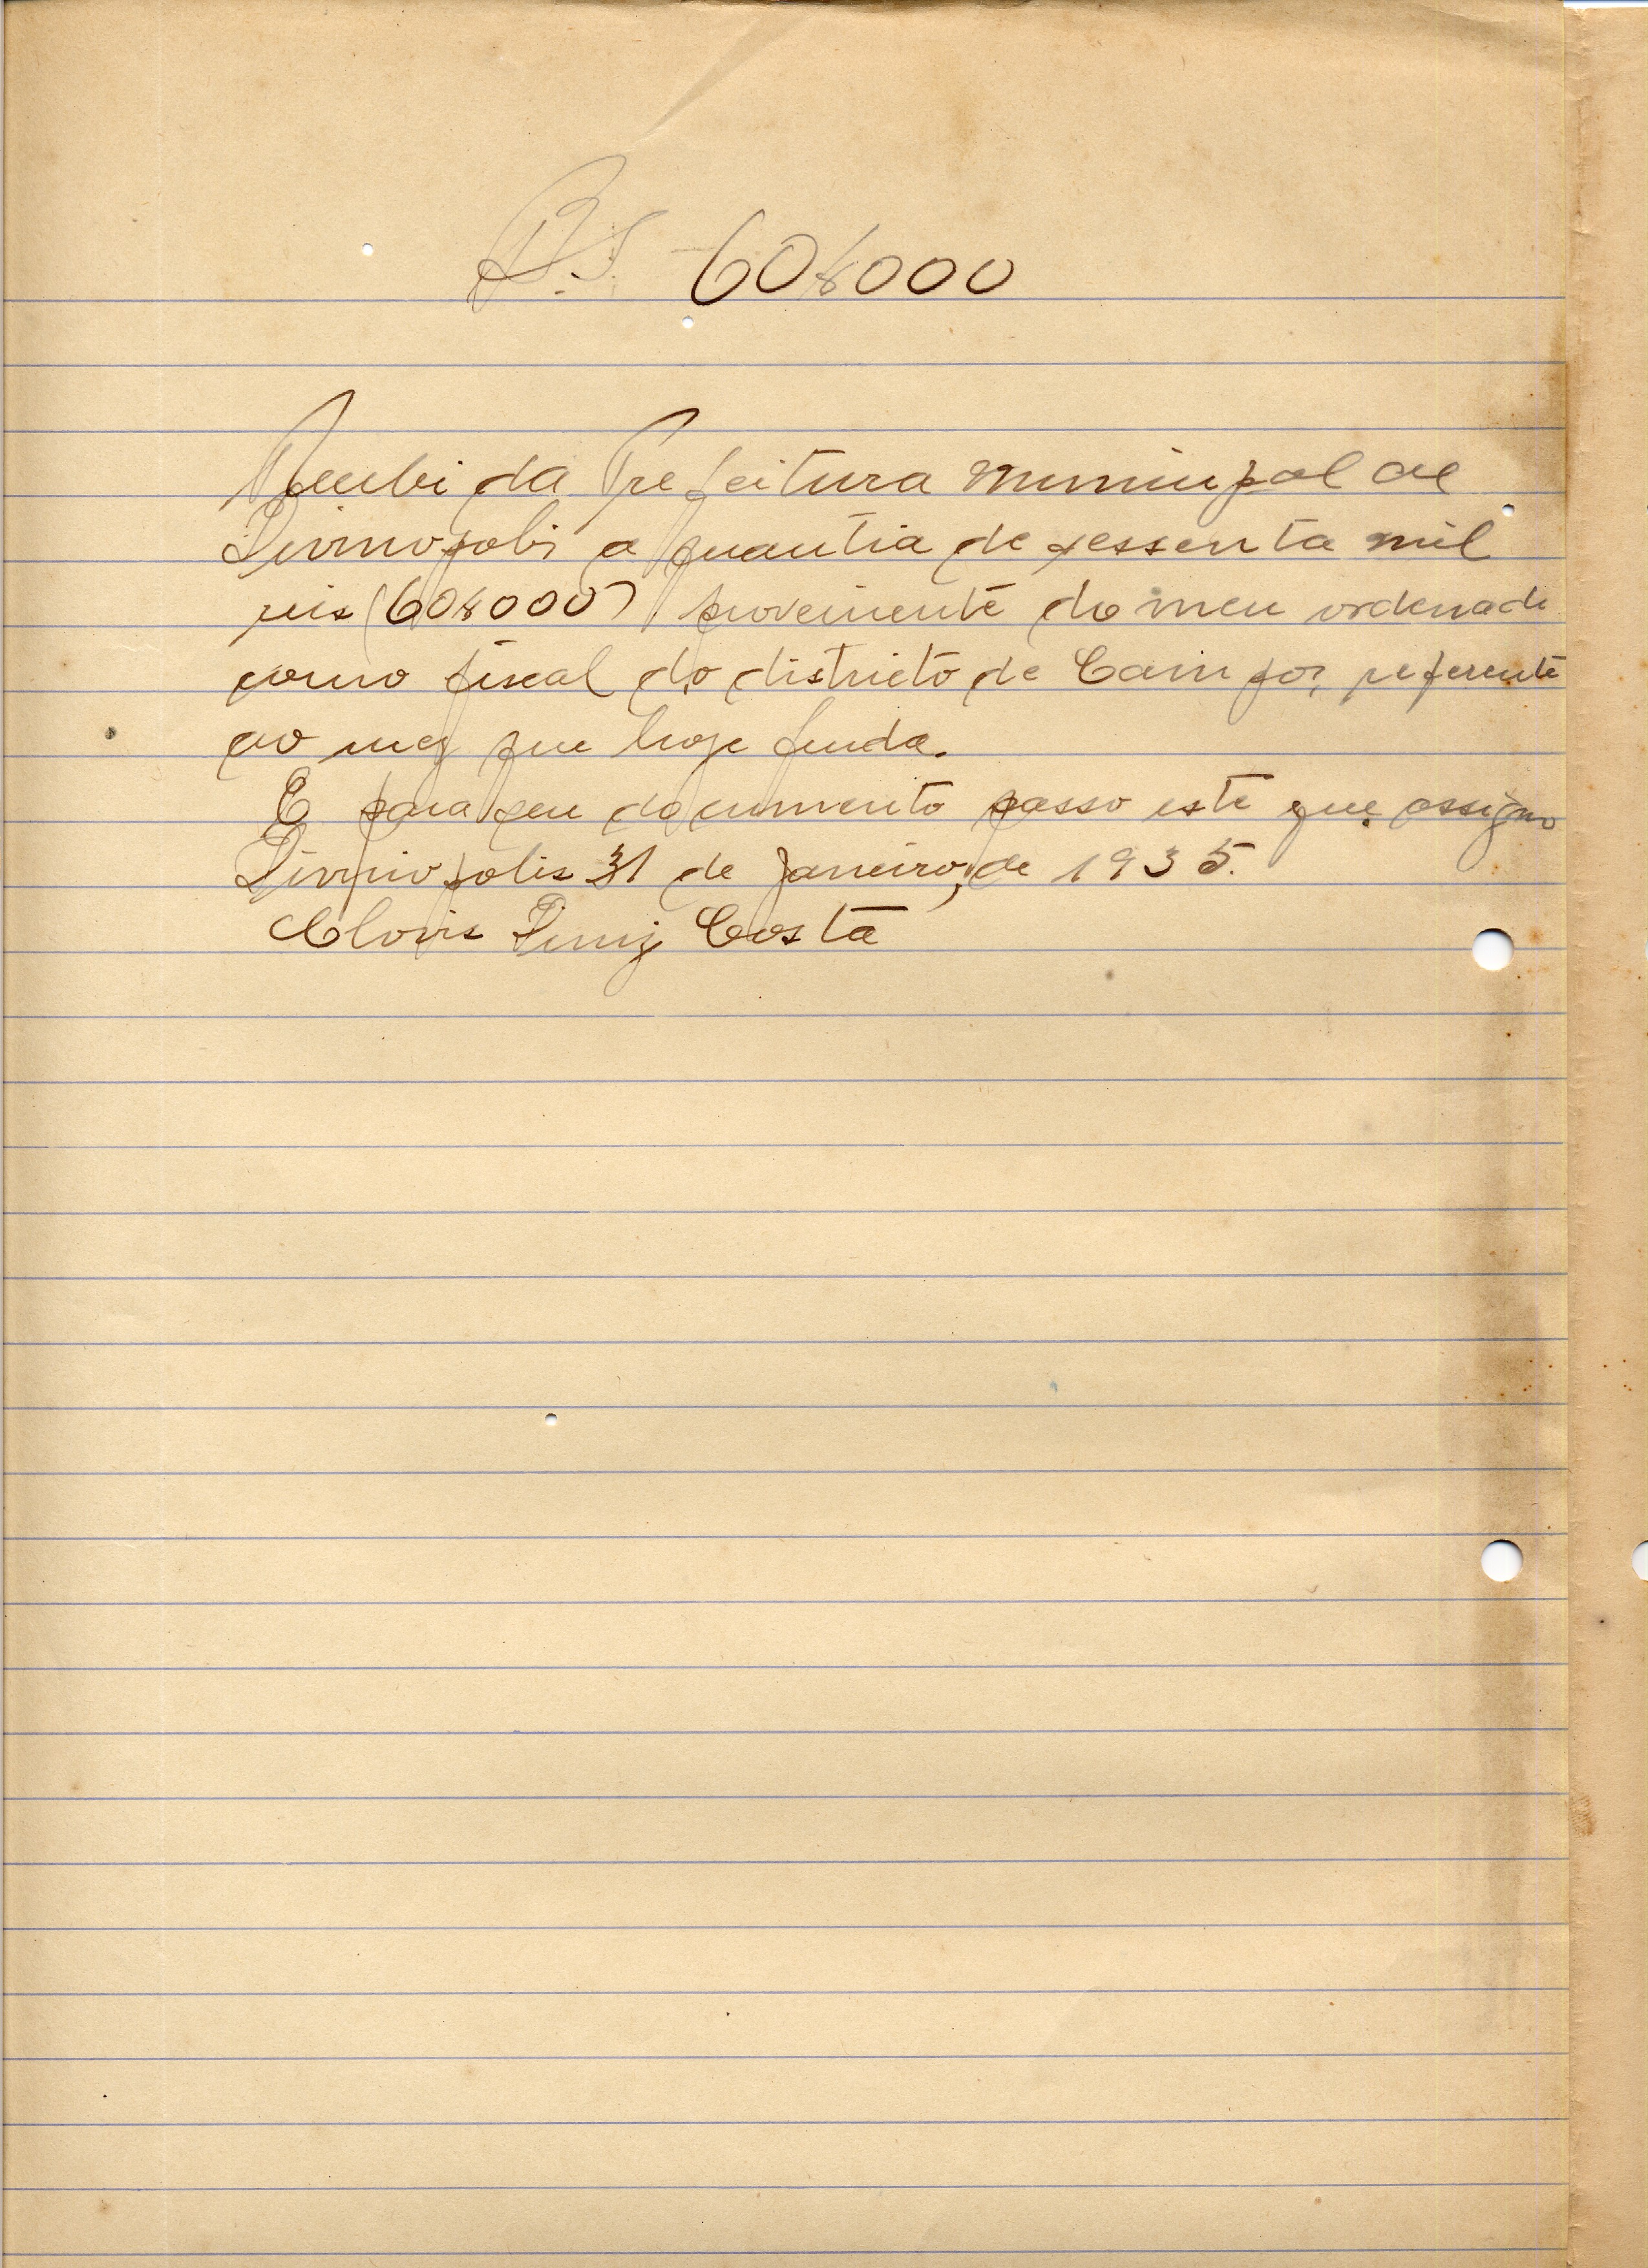 Rs. 60$000
Recebi da Prefeitura Municipal de
Divinopolis a quantia de sessenta mil
reis (60$000) proveniente do meu ordenado
como fiscal do districto de Campos, referente
ao mez que hoje finda.
E para seu documento passo este que assigno
Divinopolis 31 de Janeiro, de 1935.
Clovis Diniz Costa